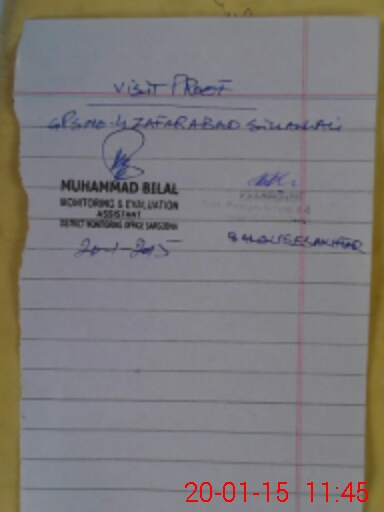 VISIT PROOF
GPS NO. 4 ZAFARABAD SILLANWALI
MUHAMMAD BILAL
MONITORING & EVALUATION
ASSISTANT
DISTRICT MONITORING OFFICE SARGODHA
20-1-2015
20-01-15 11:45